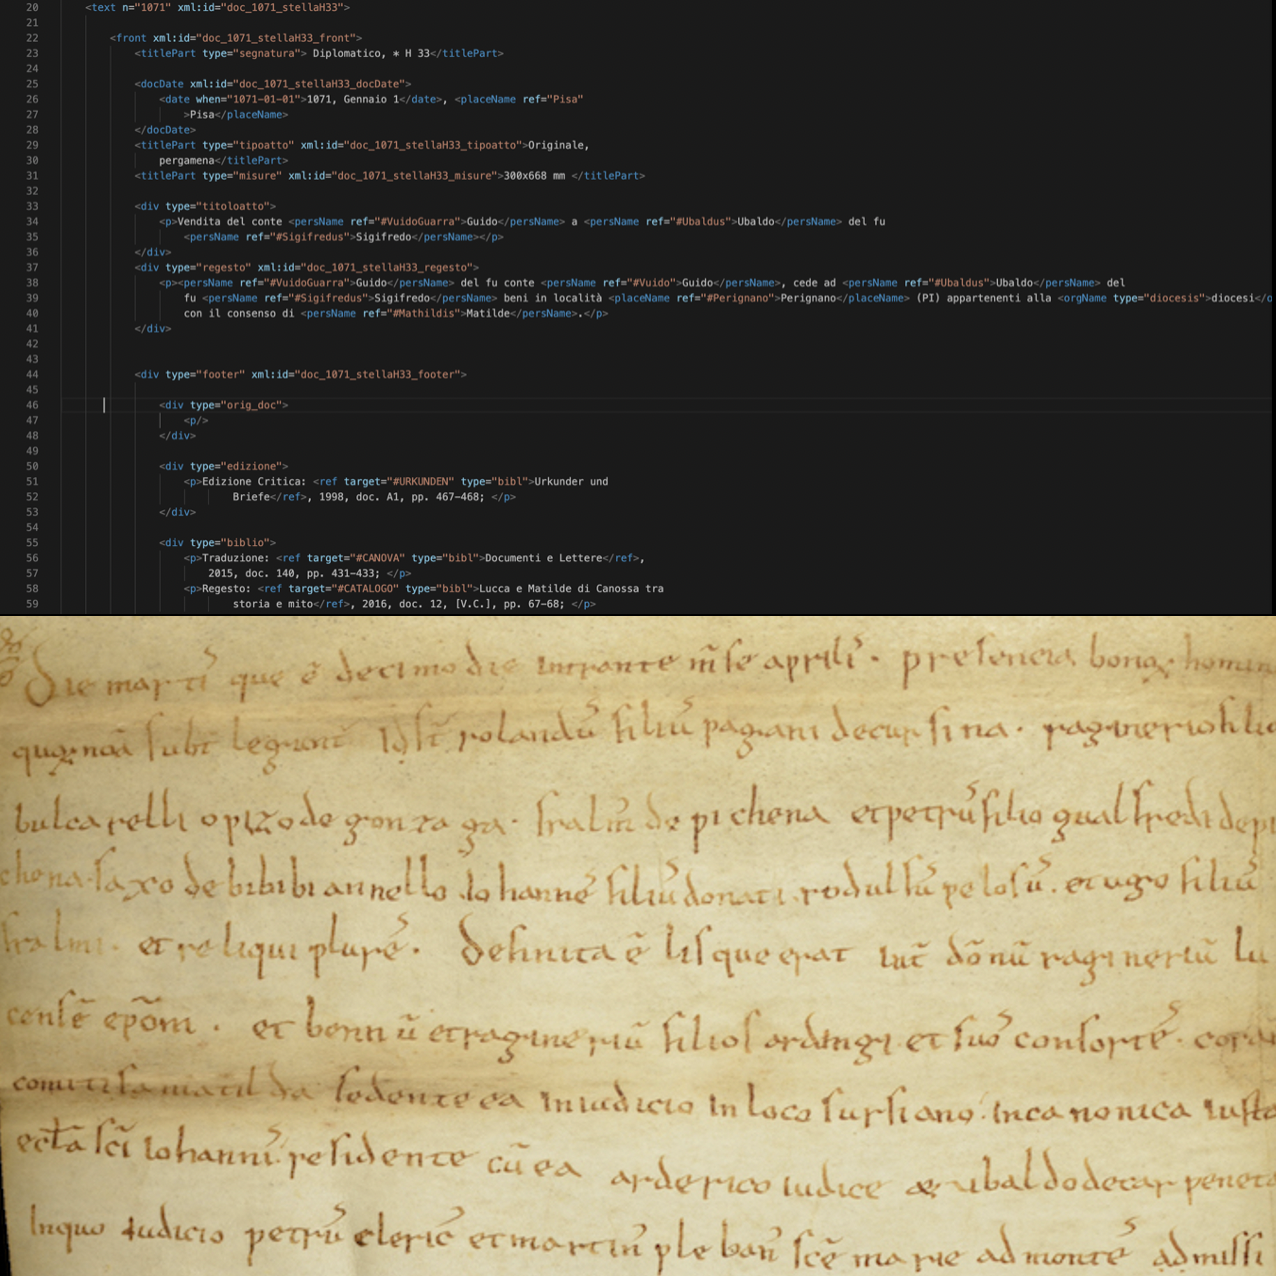 20 <text n="1071" xml:id="doc_1071_stellaH33">
21
22 <front xml:id="doc_1071_stellaH33_front">
23 <titlePart type="segnatura"> Diplomatico, * H 33</titlePart>
24
25 <docDate xml:id="doc_1071_stellaH33_docDate">
26 <date when="1071-01-01">1071, Gennaio 1</date>, <placeName ref="Pisa"
27 >Pisa</placeName>
28 </docDate>
29 <titlePart type="tipoatto" xml:id="doc_1071_stellaH33_tipoatto">Originale,
30 pergamena</titlePart>
31 <titlePart type="misure" xml:id="doc_1071_stellaH33_misure">300x668 mm </titlePart>
32
33 <div type="titoloatto">
34 <p>Vendita del conte <persName ref="#VuidoGuarra">Guido</persName> a <persName ref="#Ubaldus">Ubaldo</persName> del fu
35 <persName ref="#Sigifredus">Sigifredo</persName></p>
36 </div>
37 <div type="regesto" xml:id="doc_1071_stellaH33_regesto">
38 <p><persName ref="#VuidoGuarra">Guido</persName> del fu conte <persName ref="#Vuido">Guido</persName>, cede ad <persName ref="#Ubaldus">Ubaldo</persName> del
39 fu <persName ref="#Sigifredus">Sigifredo</persName> beni in località <placeName ref="#Perignano">Perignano</placeName> (PI) appartenenti alla <orgName type="diocesis">diocesi</o
40 con il consenso di <persName ref="#Mathildis">Matilde</persName>.</p>
41 </div>
42
43
44 <div type="footer" xml:id="doc_1071_stellaH33_footer">
45
46 <div type="orig_doc">
47 <p/>
48 </div>
49
50 <div type="edizione">
51 <p>Edizione Critica: <ref target="#URKUNDEN" type="bibl">Urkunder und
52 Briefe</ref>, 1998, doc. A1, pp. 467-468; </p>
53 </div>
54
55 <div type="biblio">
56 <p>Traduzione: <ref target="#CANOVA" type="bibl">Documenti e Lettere</ref>,
57 2015, doc. 140, pp. 431-433; </p>
58 <p>Regesto: <ref target="#CATALOGO" type="bibl">Lucca e Matilde di Canossa tra
59 storia e mito</ref>, 2016, doc. 12, [V.C.], pp. 67-68; </p>
Die marti que ē decimo die intrante m̄se aprili. presencia bonoꝝ homin
quoꝝ noā subt legunt Id st rolandū filiū pagani decursina. raginerio filio
bulcarelli opizo de gonzaga. fralm de pichena et petrū filio gualfredi de pi
chena. saxo de bibibianello Iohanne filiū donati rodulfū pelosū. et ugo filiū
fralmi. et reliqui plure. Definita ē lis que erat int dōnū ragineriū lu
censē ep̄om. et bennū et ragineriū filios ardingi et suo consorte. corā
comitisa matilda sedente ea in iudicio in loco sursiano. in canonica iusta
eccl̄a sc̄i Iohanni. residente cū ea arderico iudice et ubaldo de carpeneta
In quo iudicio petrū cleric et martin pleban sc̄e marie ad monte admissi